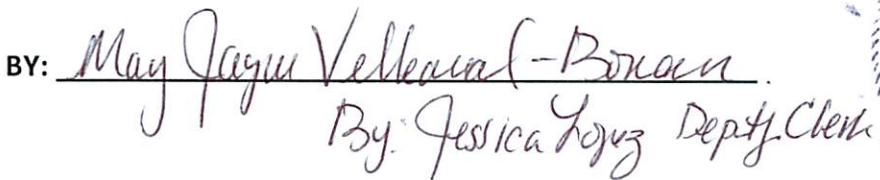 BY: May Jayne Villareal-Bonan
By: Jessica Lopez Deputy Clerk